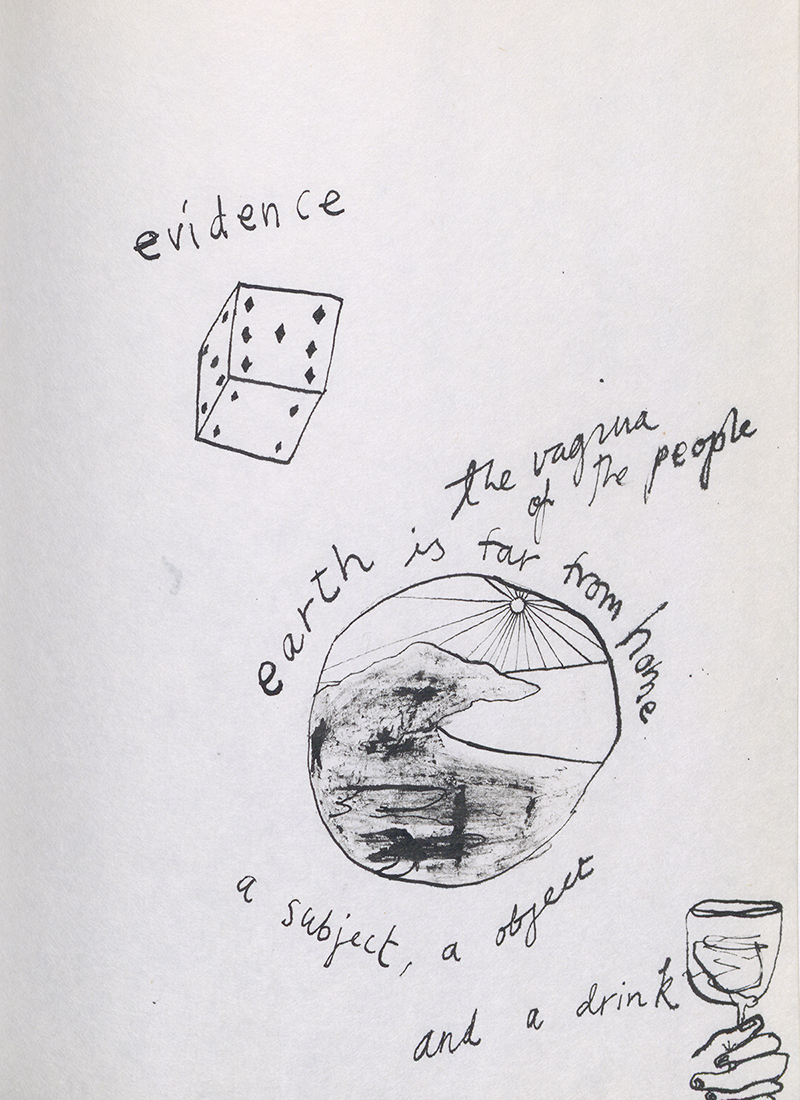 evidence
the vagina
of the people
earth is far from home
a subject, a object
and a drink